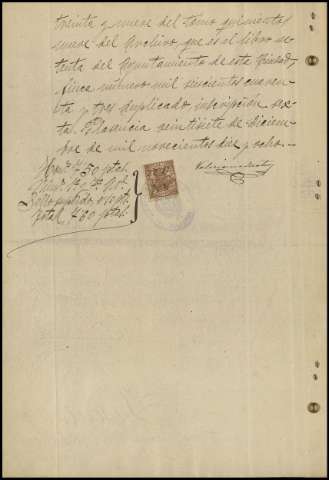 treinta y nueve del tomo quinientos
nueve del Archivo, que es el libro se-
tenta del Ayuntamiento de esta Ciudad,
finca número mil seiscientos cuaren-
ta y tres duplicado, inscripción sex-
ta. Plasencia veintisiete de diciem-
bre de mil novecientos diez y ocho.
Hon.ˢ 7'50 ptas.
total, 7'60 ptas.